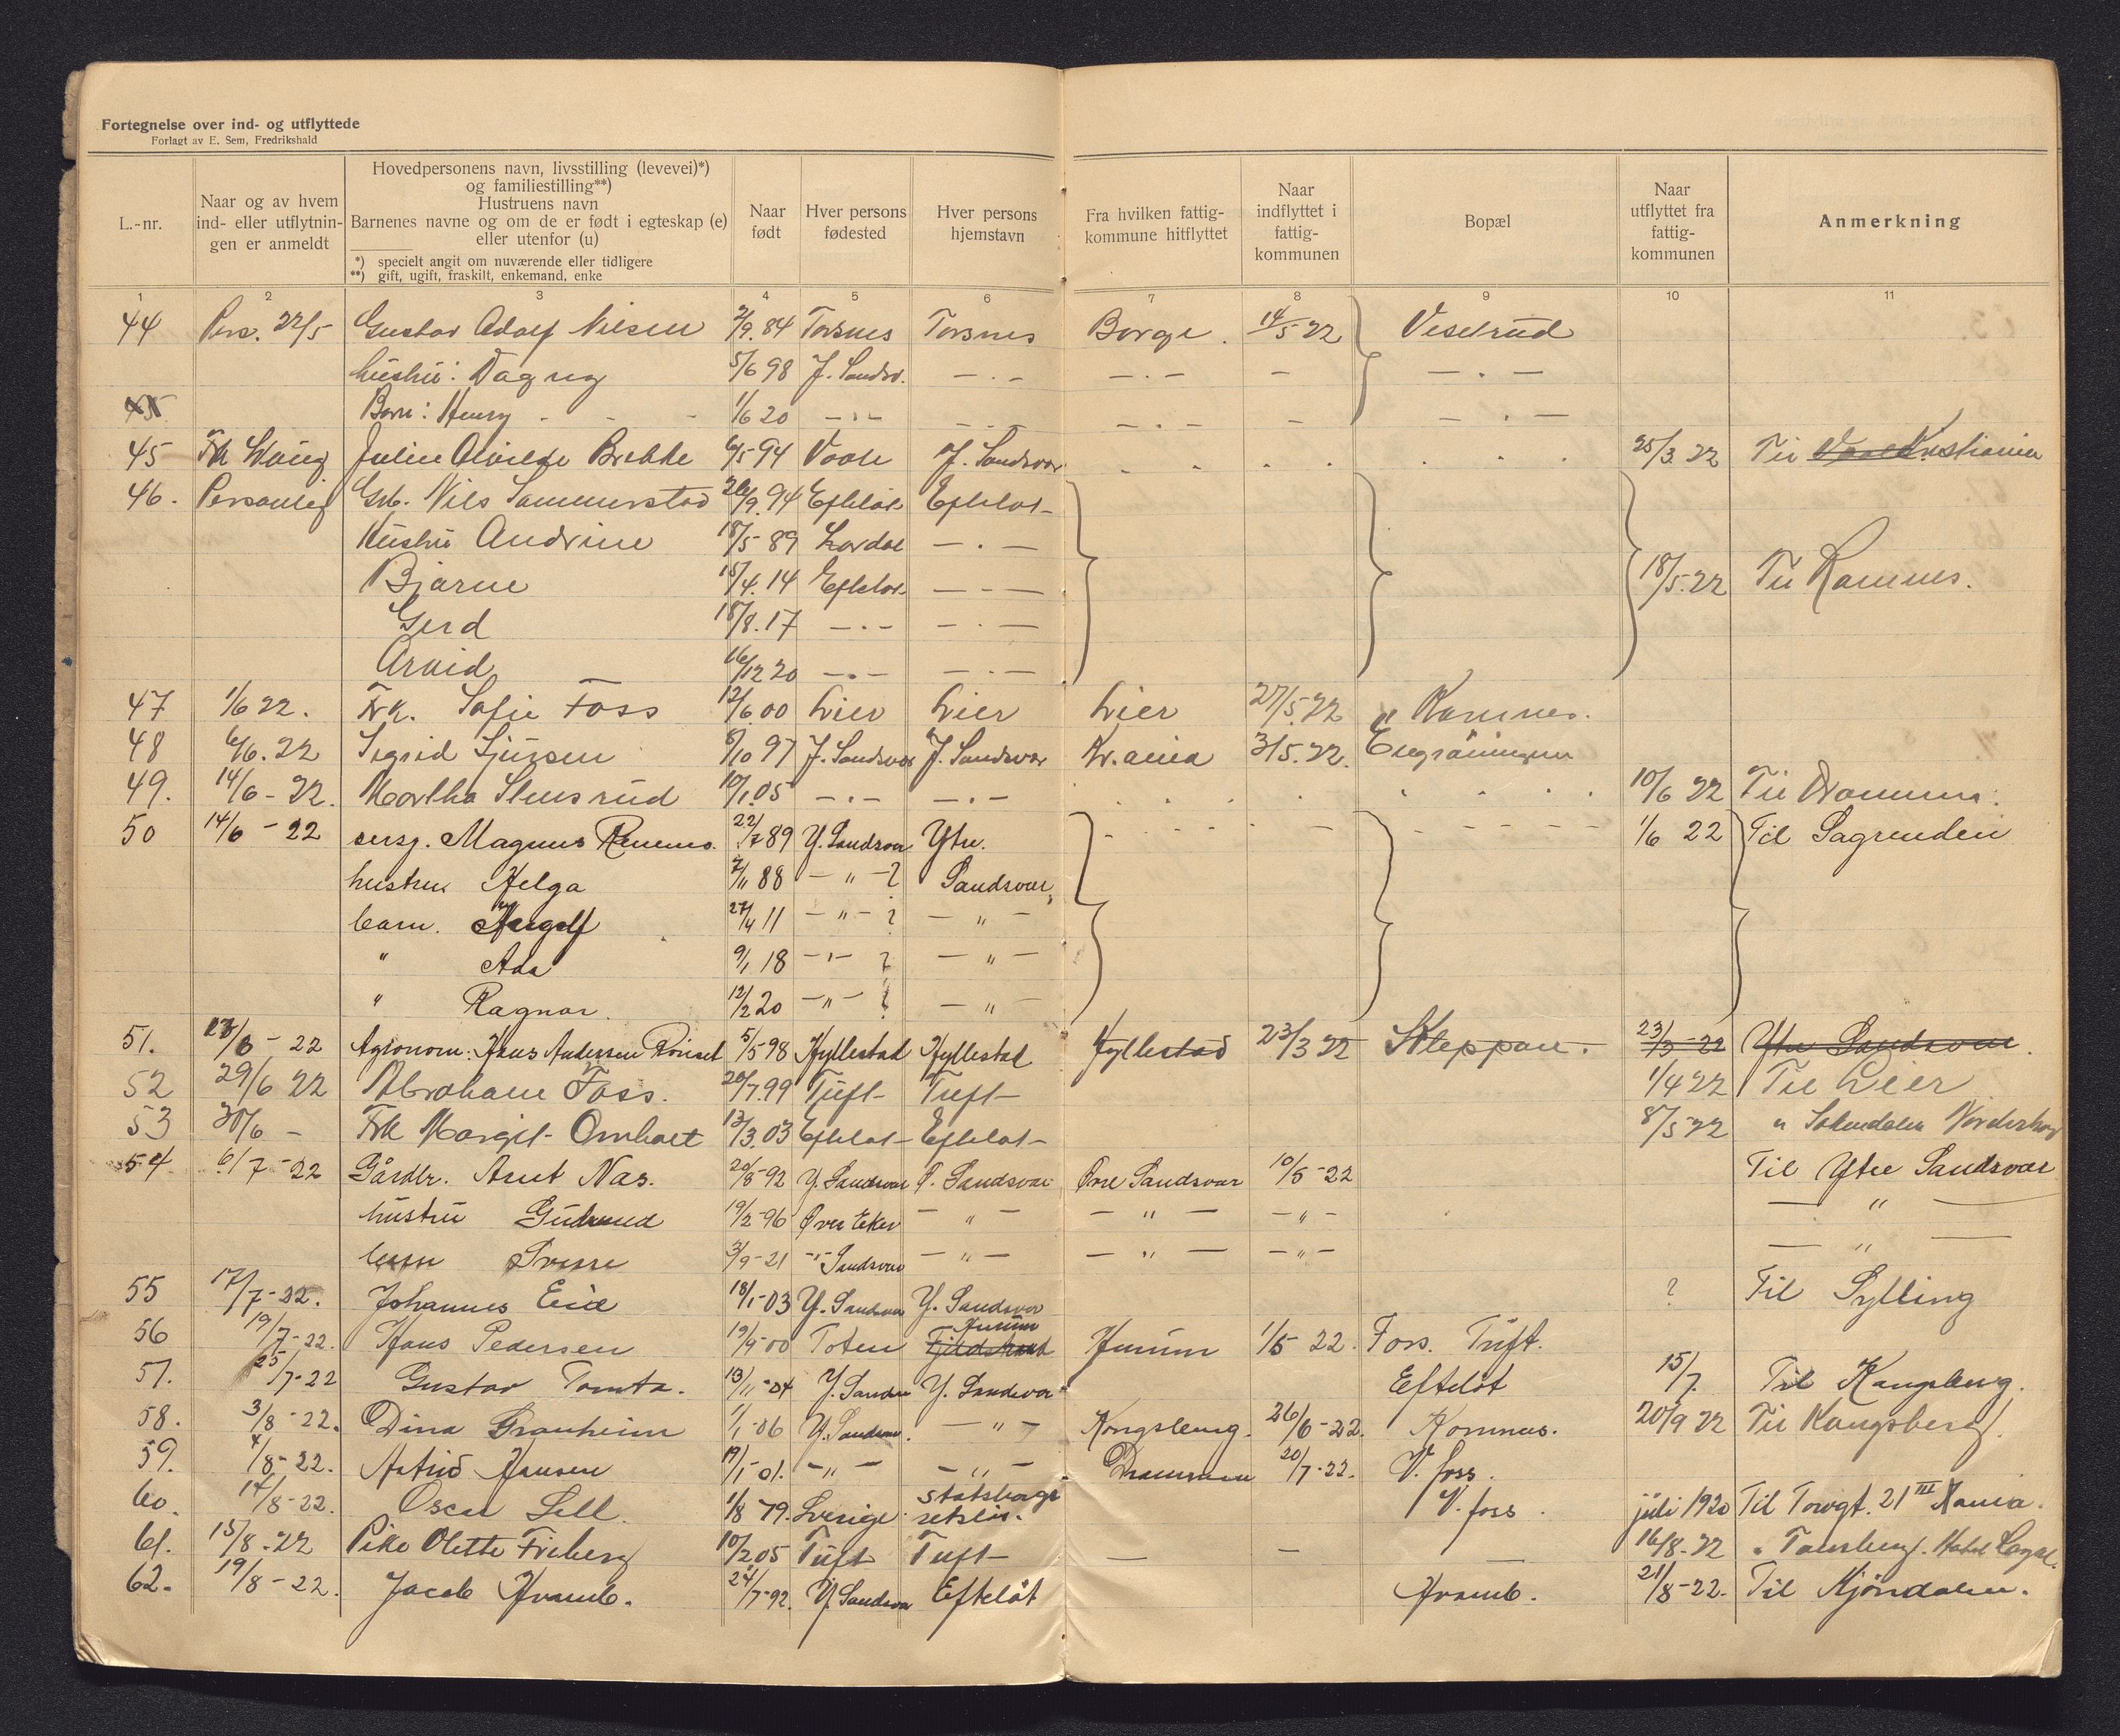 Fortegnelse over ind- og utflyttede
Forlagt av E. Sem, Fredrikshald
L.-nr.
Naar og av hvem ind- eller utflytnin- gen er anmeldt
Hovedpersonens navn, livsstilling (levevei)*)
og familiestilling**)
Hustruens navn
Barnenes navne og om de er født i egteskap (e)
eller utenfor (u)
*) specielt angit om nuværende eller tidligere
**) gift, ugift, fraskilt, enkemand, enke
Naar født
Hver persons fødested
Hver persons hjemstavn
Fra hvilken fattig- kommune hitflyttet
Naar indflyttet i fattig- kommunen
Bopæl
Naar utflyttet fra fattig- kommunen
Anmerkning
1 2 3 4 5 6 7 8 9 10 11
44 Pers. 22/5 Gustav Adolf Nilsen 2/9. 84 Torsnes Torsnes Borge. 14/5 22
hustru: Dagny 5/6 98 J. Sandsv. — . — — . — — — . —
Barn: Henry 1/6 20 — . — — . — — . — — — . —
45 6/5 94 J. Sandsvær 25/3 22 Til Kristiania
46. Personlig Nils 26/9. 94 Efteløt Efteløt
Hustru Andrine 18/5 89 Lardal — . —
Bjarne 15/4. 14 Efteløt — . — 18/5. 22 Til Ramnes.
Gerd 18/8. 17 — . — — . —
Arvid 16/12 20 — . — — . —
47 1/6 22. Frk. Sofie Foss 12/6 00 Lier Lier Lier 27/5. 22 " Komnes.
48 6/6. 22 Sigrid 6/10 97 J. Sandsvær J. Sandsvær Kr.ania 3/5. 22.
49. 14/6 - 22. Martha 10/1. 05 — . — — . — 10/6 22 Til
50 14/6 - 22 sersj. Magnus 22/7 89 Y. Sandsvær Ytre. 1/6 22 Til Sagrenden
hustru Helga 2/11 88 — " — ? Sandsvær,
barn. 27/4 11 — " — ? — " —
" Ada 9/1 18 — " — ? — " —
" Ragnar. 12/2 20 — " — ? — "
51. /6 - 22 Agronom: Hans Andersen 5/5 98 Hyllestad Hyllestad Hyllestad 23/3 22 Kleppan. 23/3 - 22 Ytre Sandsvær.
52 29/6 22 Abraham Foss. 20/7. 99 Tuft Tuft 1/4 22 Til Lier
53 30/6 — Frk Margit Omholt 13/3. 03 Efteløt Efteløt 8/5 22 "
54 6/7 - 22 Gårdbr. Arnt Næs. 20/8 - 92 Y. Sandsvær Ø. Sandsvær Øvre Sandsvær 10/5 - 22 Til Ytre Sandsvær
hustru Gudrund 19/2 - 96 Øvre Eker — " — — " — — " — — " —
barn Sverre 3/9 - 21 — " — Sandsvær — " — — " — — " — — " —
55 17/7 - 22. Johannes Eie 18/1 - 03 Y. Sandsvær Y. Sandsvær ? Til Sylling
56 19/7 - 22. Hans Pedersen 19/9 - 00 Toten Hurum Hurum 1/5 22. Foss. Tuft.
57. 25/7 - 22 Gustav Tomta. 13/11 - 04 Y. Sandsv Y. Sandsvær Efteløt 15/7. Til Kongsberg.
58. 3/8 - 22. Dina Granheim 1/1 - 06 Y. Sandsvær. — " — Kongsberg. 26/6 - 22. Komnes. 20/9 22 Til Kongsberg.
59. 4/8 - 22. Astrid Hansen 19/1 - 01. — " — — " — Drammen 20/7 - 22. V. foss.
60. 14/8 - 22. Oscar Sell. 1/8 79. Sverige statsborgr retsløs. V. foss. juli 1920 Til Torvgt. 21 III Kania.
61. 15/8 - 22 Pike Olette Friberg 10/2. 05 Tuft Tuft — — — 16/8 - 22 " Tønsberg. Hotel
62. 19/8 - 22. Jacob Hvamb. 24/7 - 92. Y. Sandsvær Efteløt Hvamb. 21/8 - 22. Til Mjøndalen.